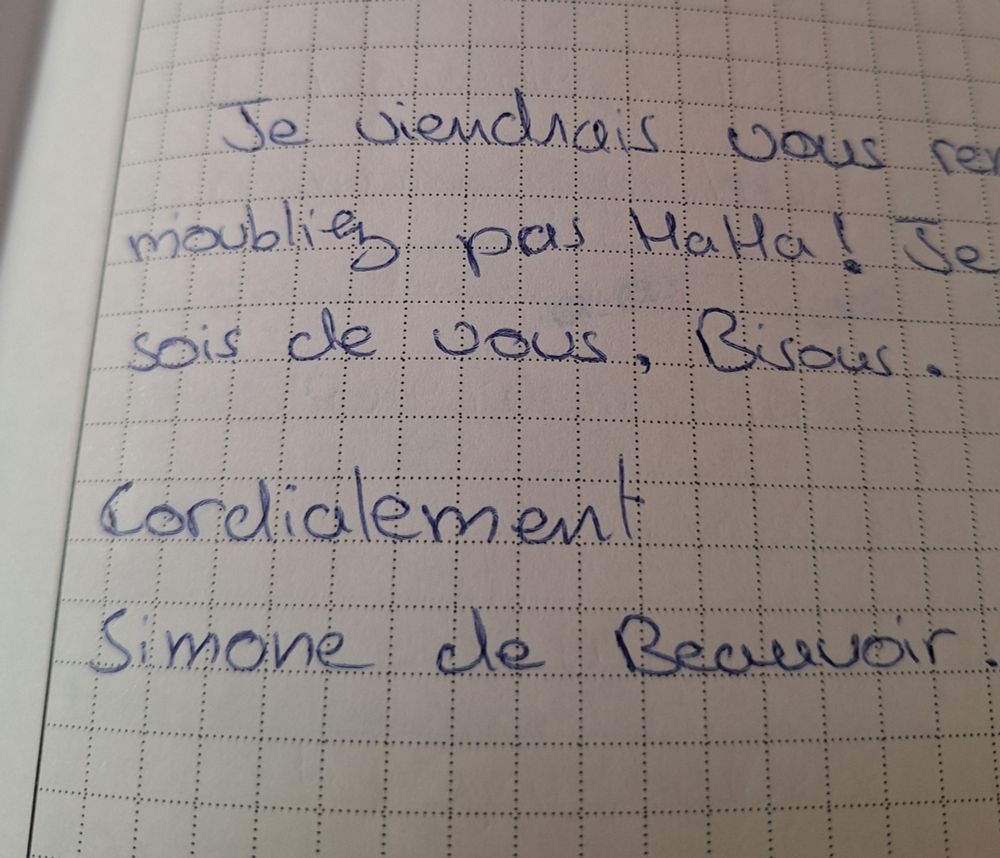 Je viendrais vous rer
moubliez pas HaHa! Je
sois de vous, Bisous.
Cordialement
Simone de Beauvoir.